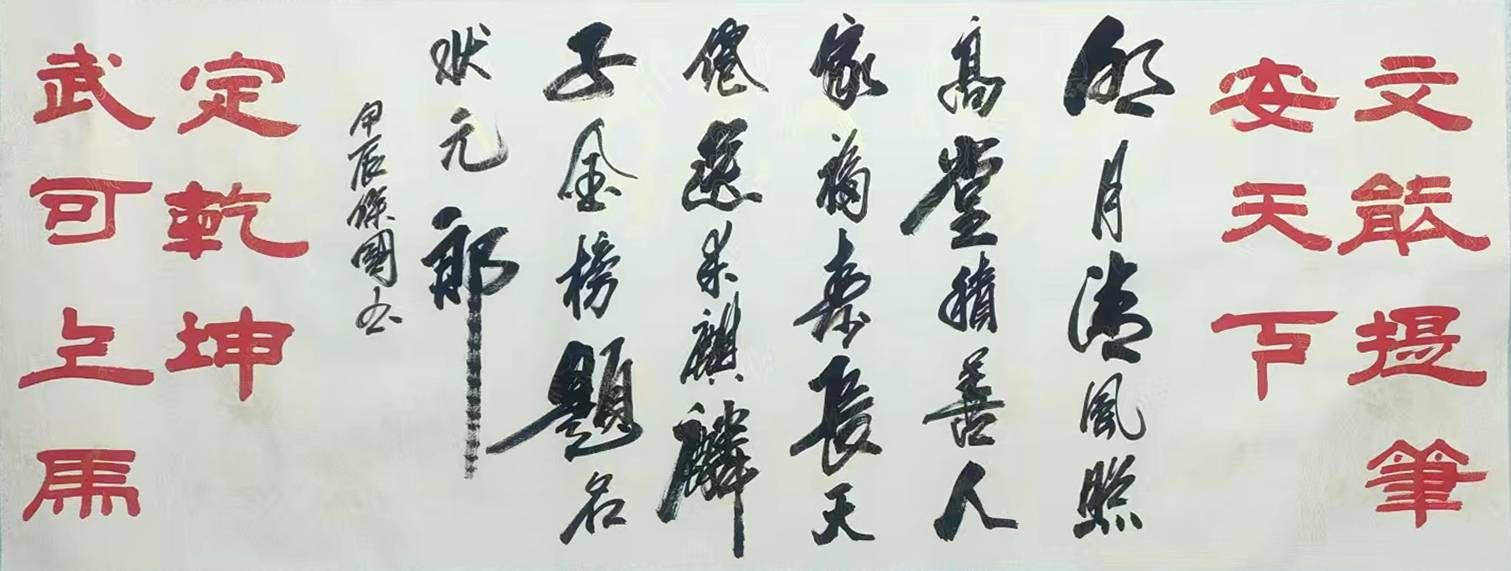 文能提筆
安天下
明月清風照
高堂積善人
家福壽長天
僊選来麒麟
子金榜題名
状元郎
甲辰徐國书
武可上馬
定乾坤